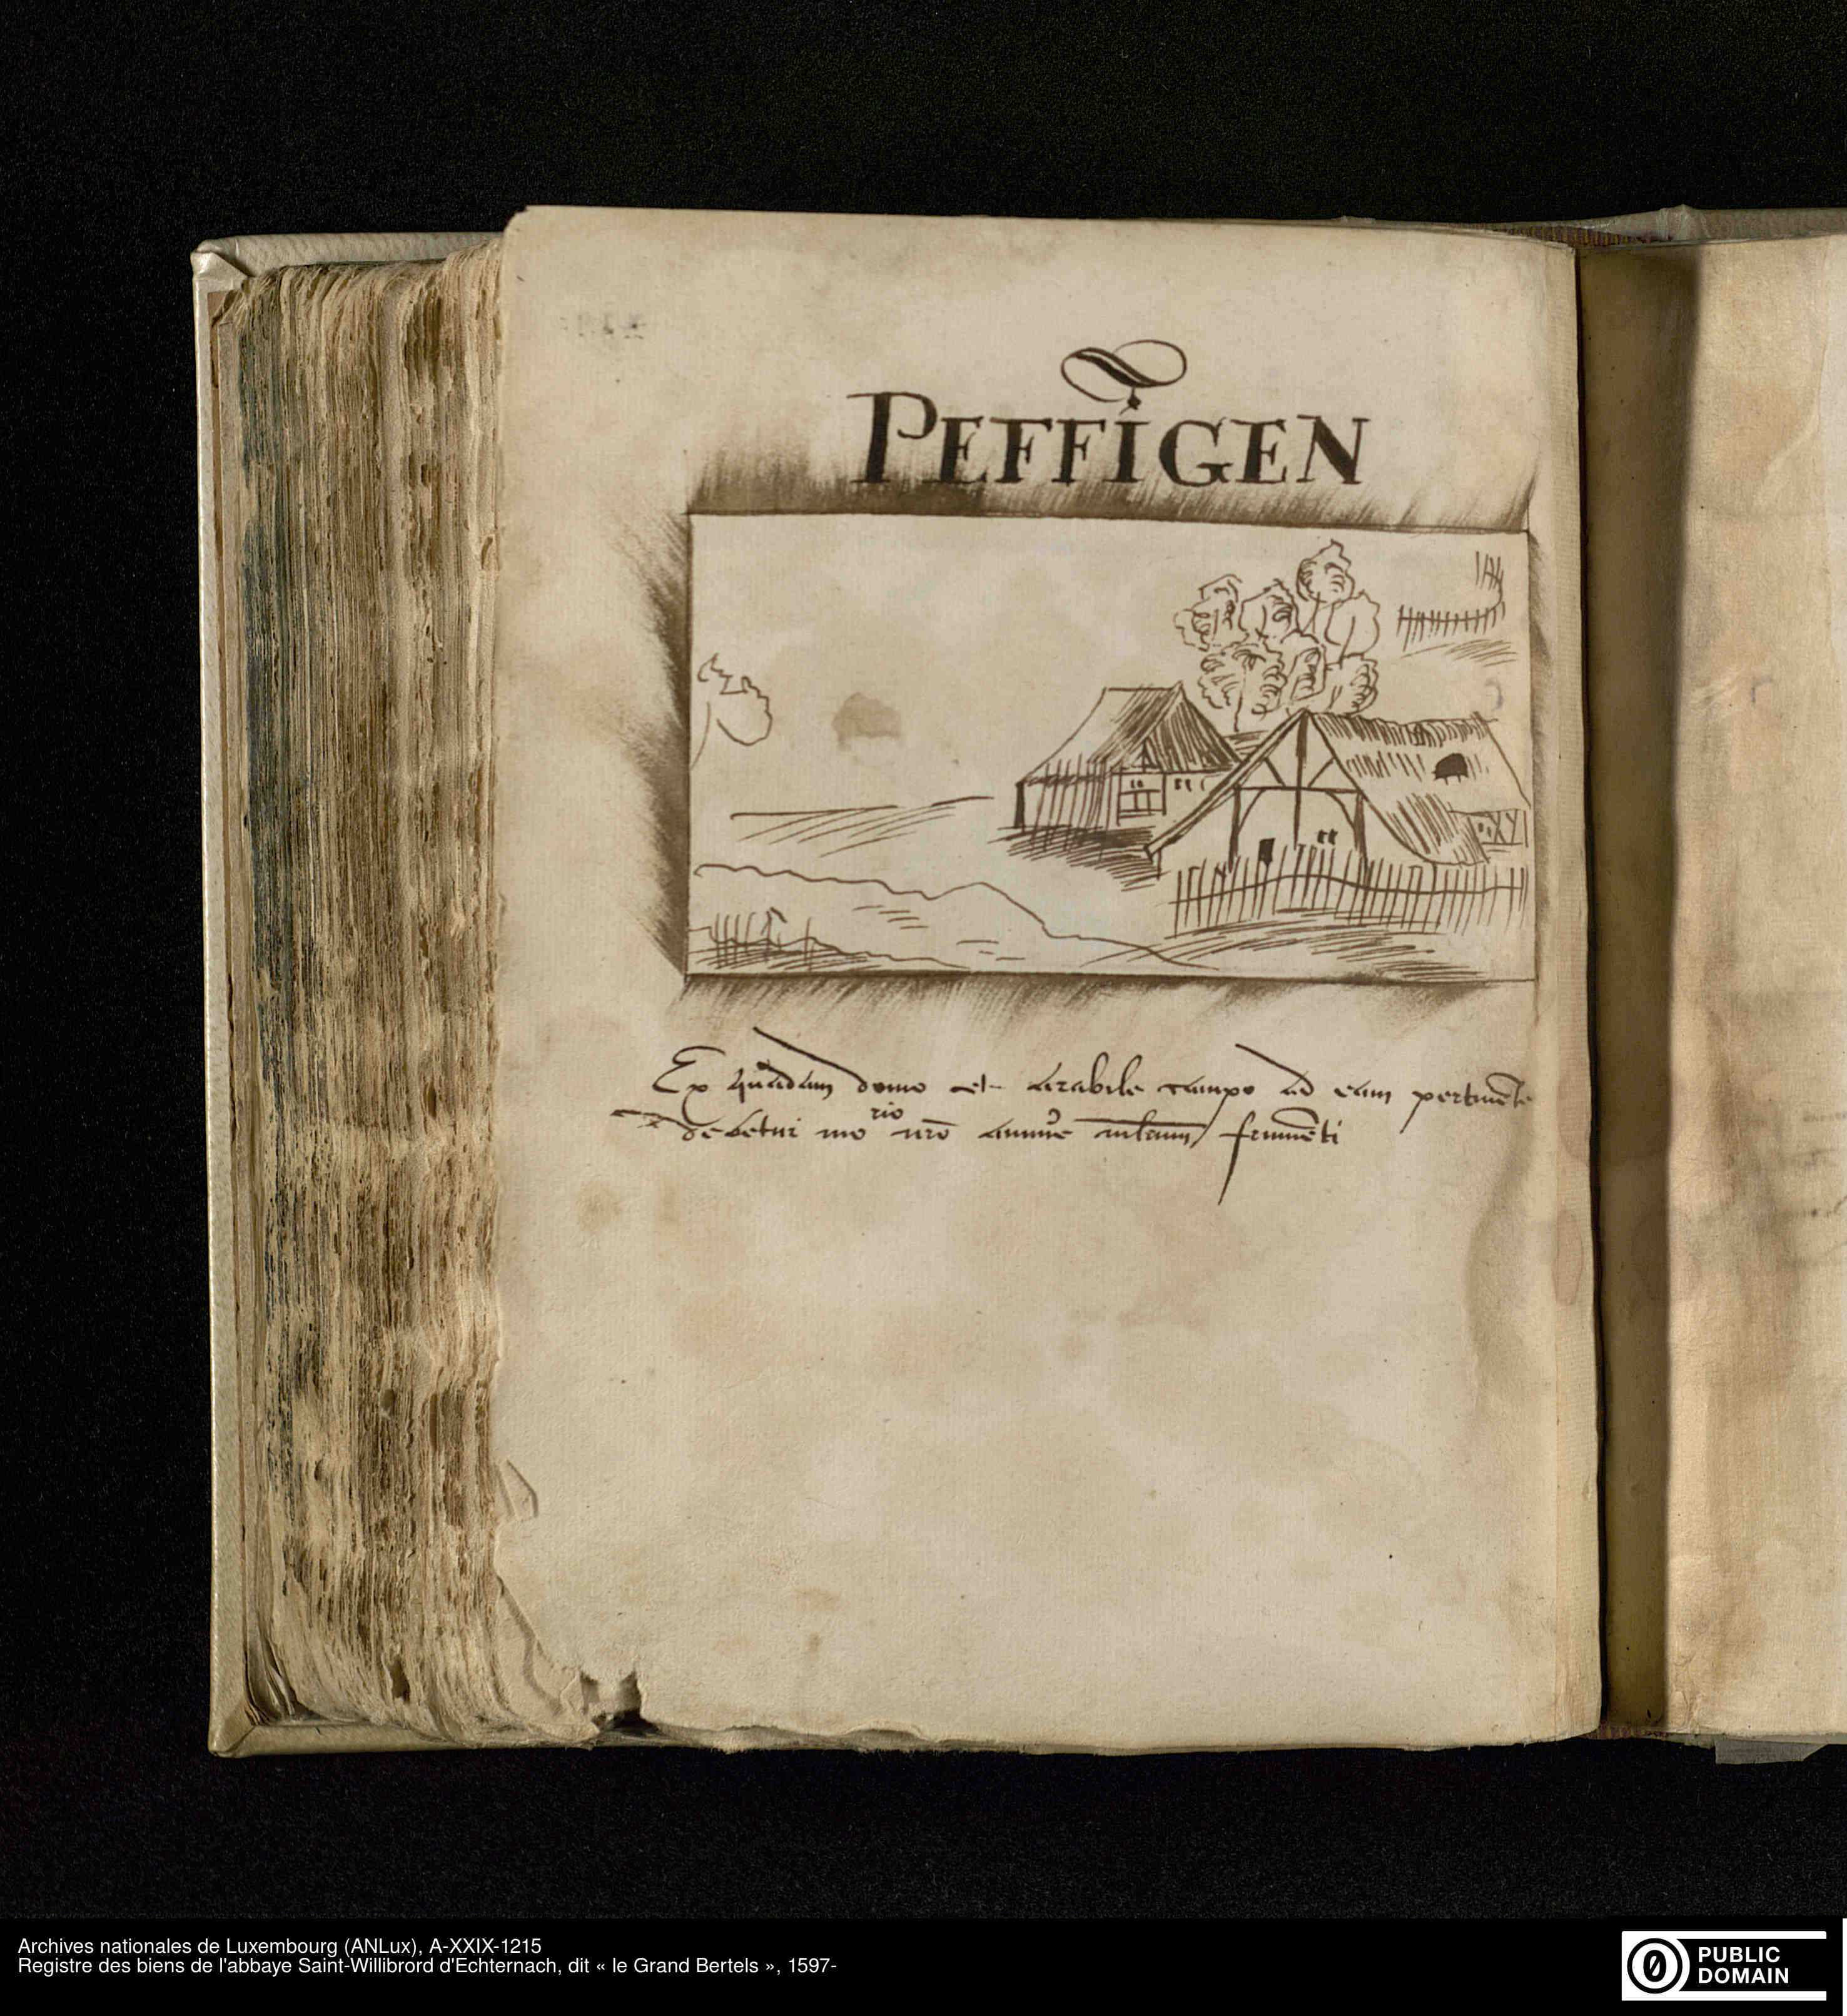 PEFFIGEN
Ex quadam domo et arabile campo ad eam pertinēte
debetur mo rio nrō annue frumēti
Archives nationales de Luxembourg (ANLux), A-XXIX-1215
Registre des biens de l'abbaye Saint-Willibrord d'Echternach, dit « le Grand Bertels », 1597-
PUBLIC
DOMAIN